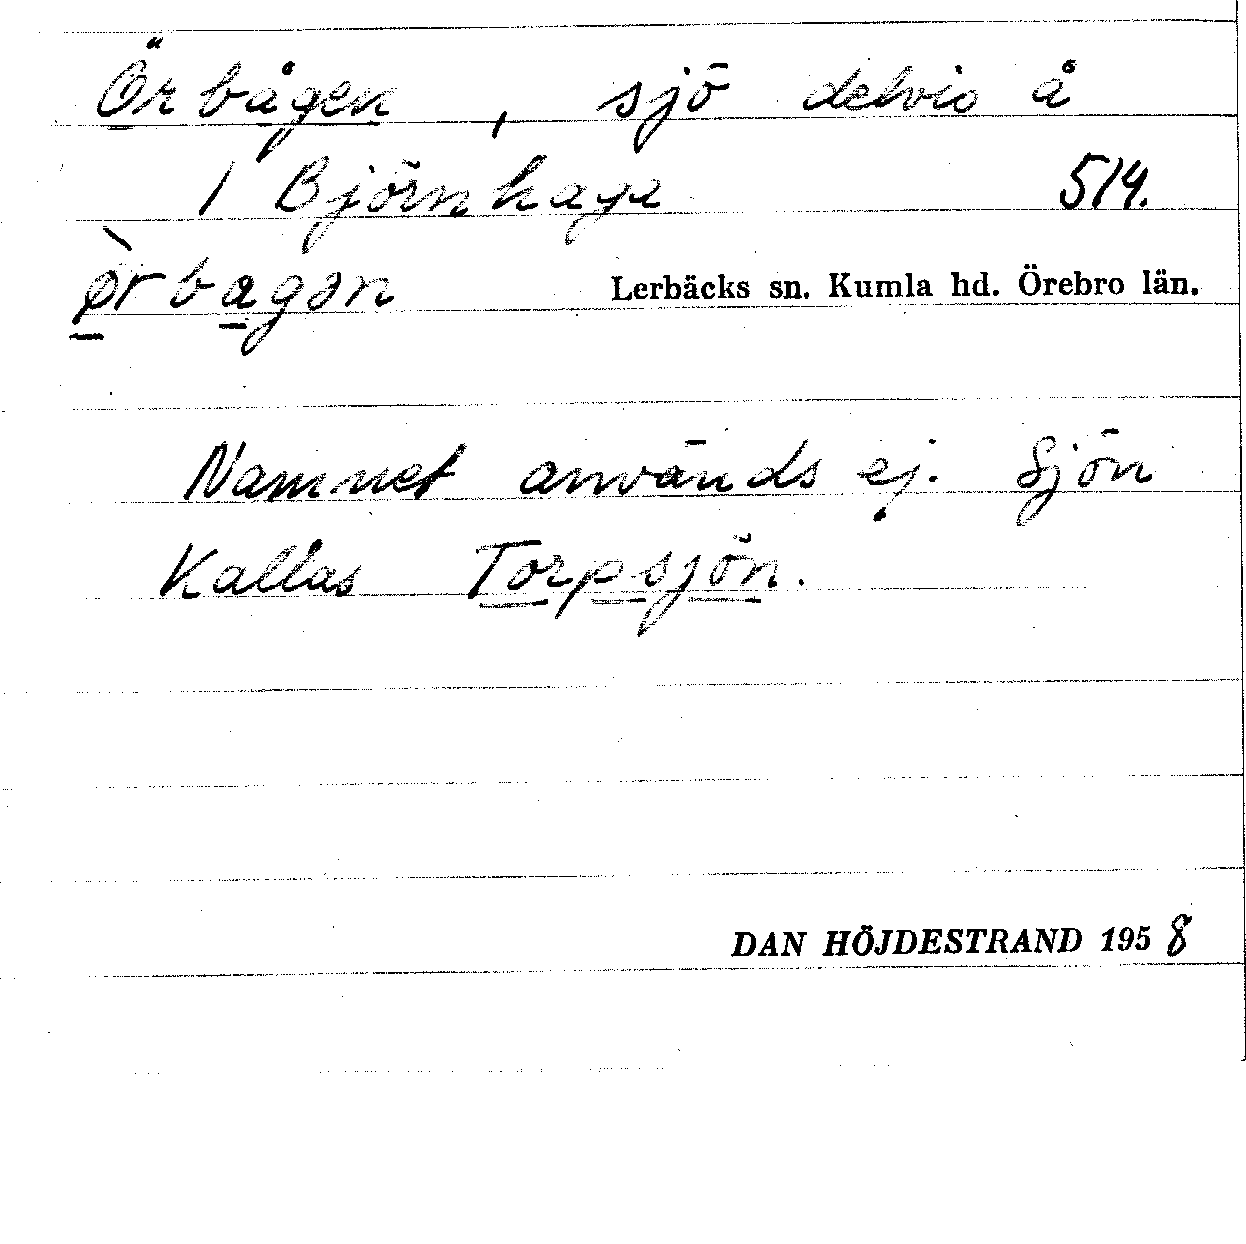 Örbågen, sjö delvis å
1 Björnhage 514.
ø̀rbagən Lerbäcks sn. Kumla hd. Örebro län.
Namnet används ej. Sjön
Kallas Torpsjön.
DAN HÖJDESTRAND 1958